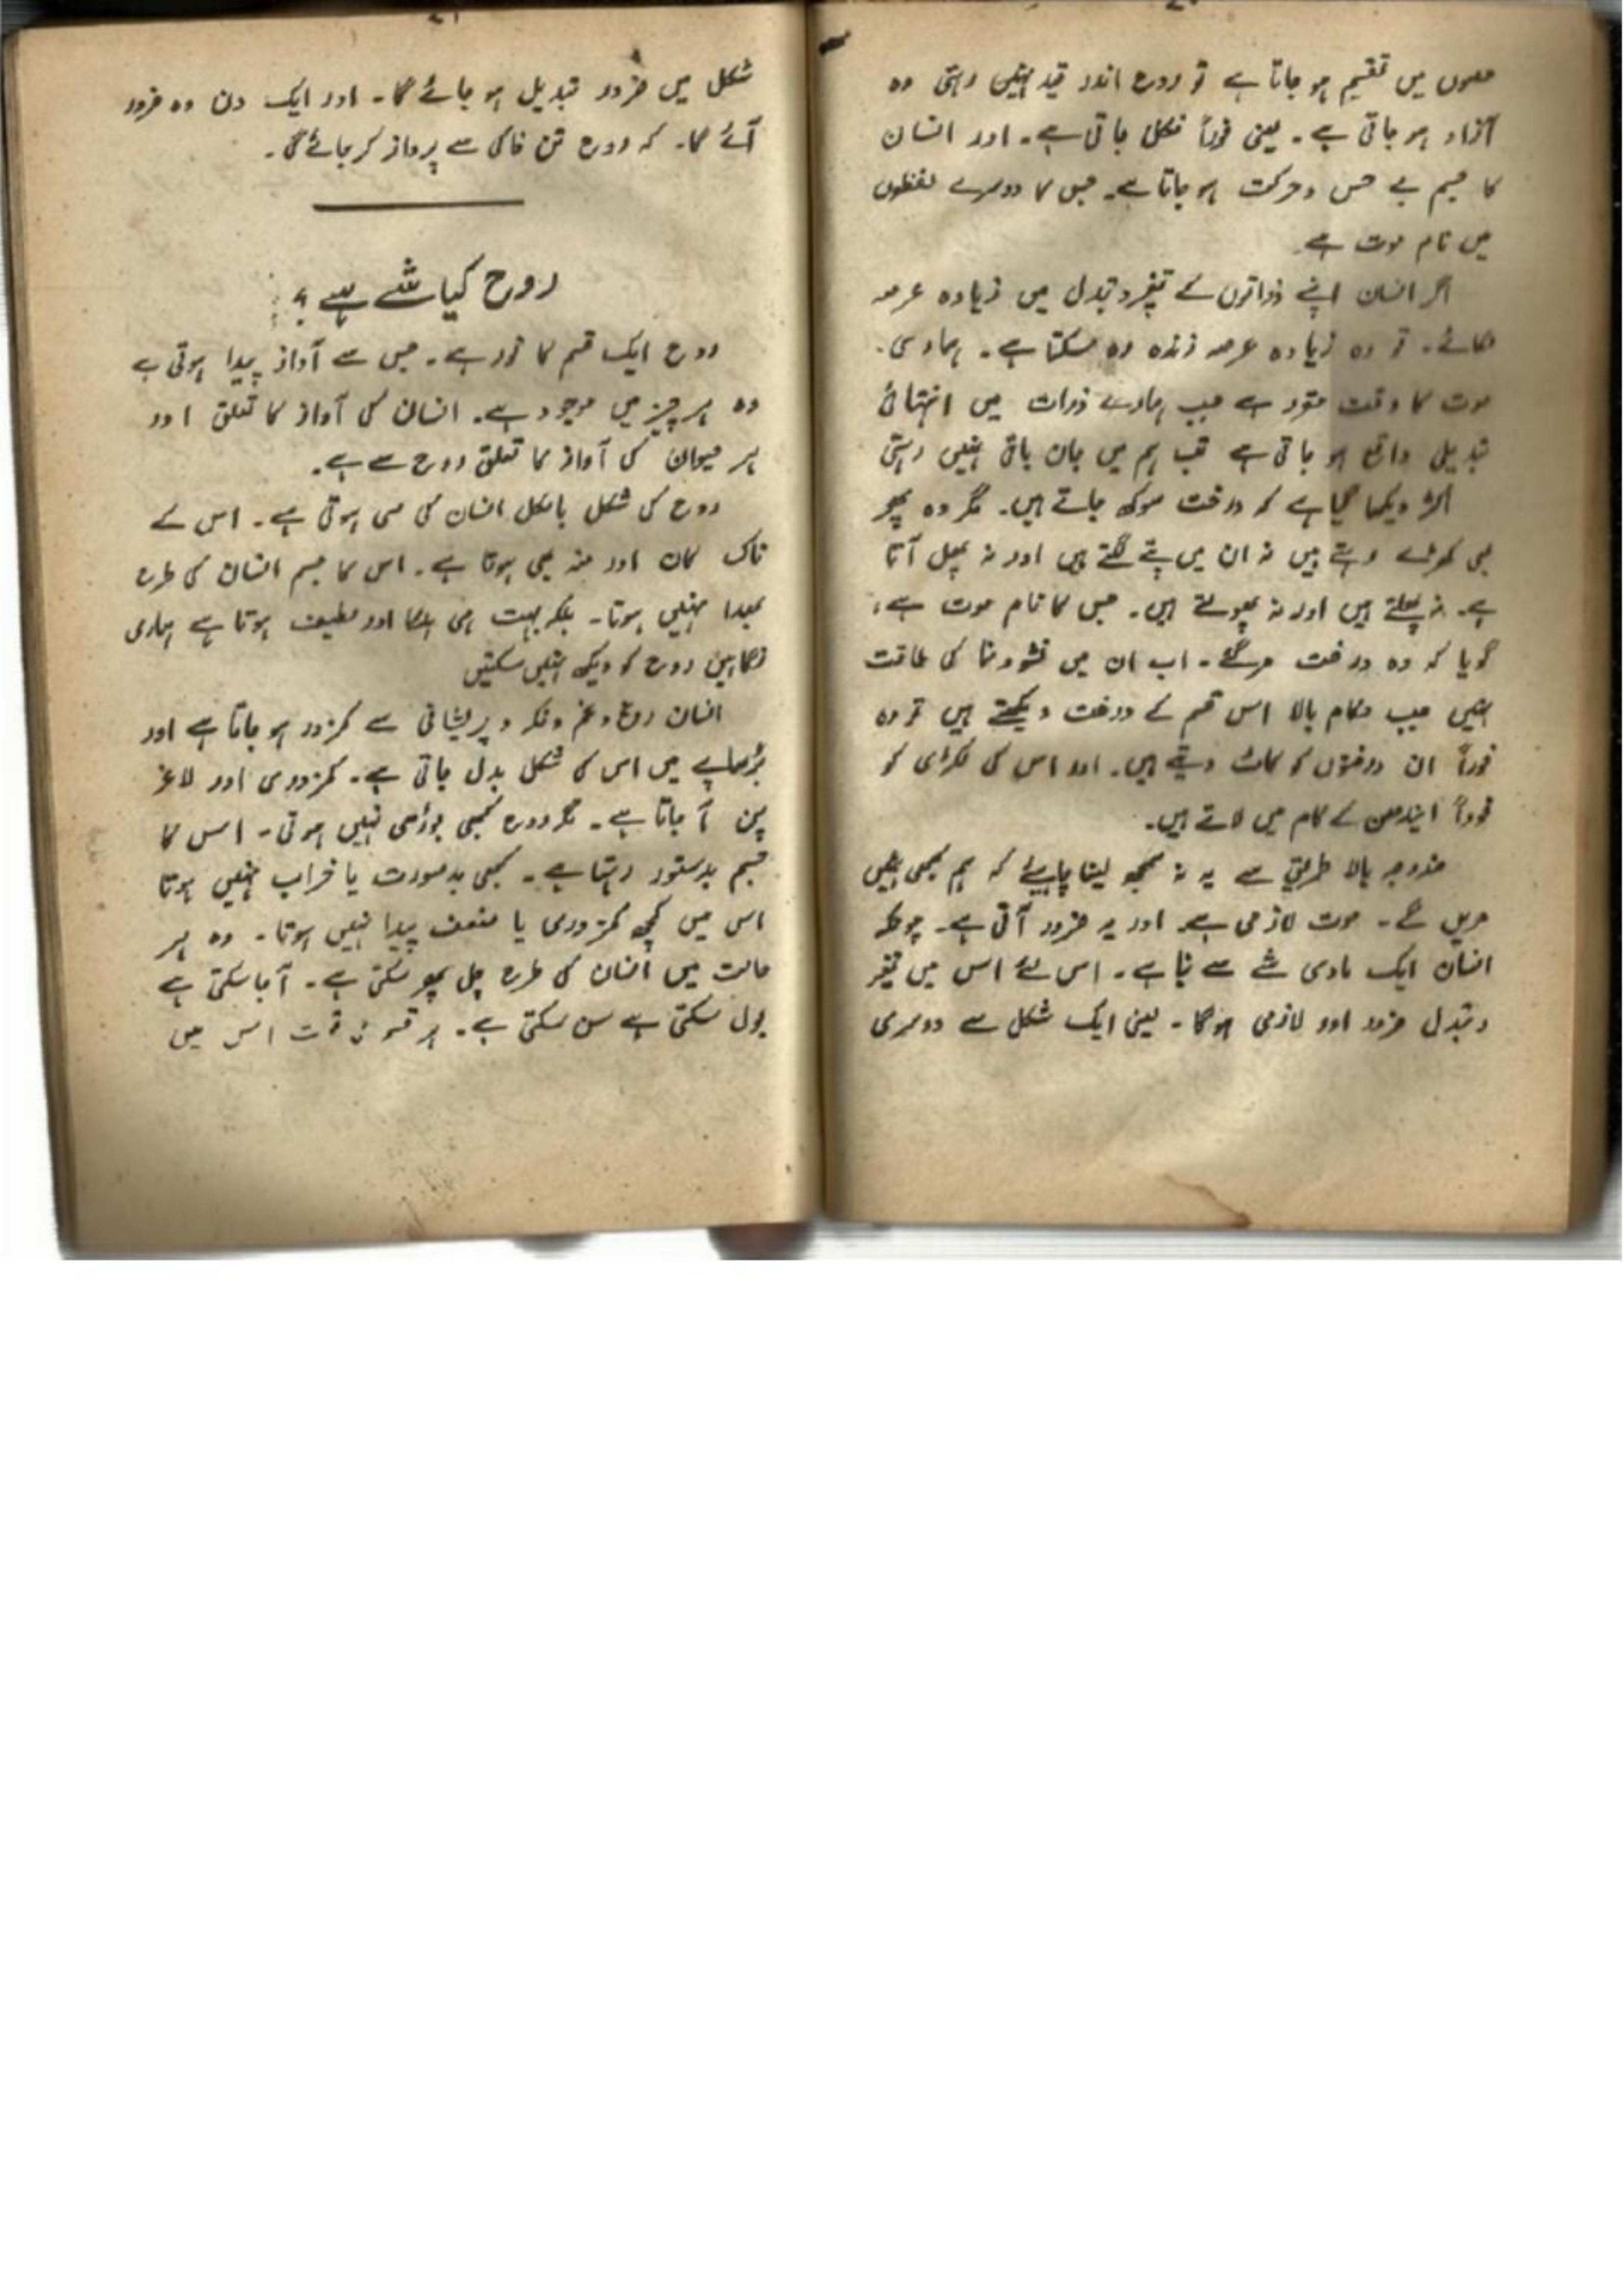 حصوں میں تقسیم ہو جاتا ہے تو روح اندر قید نہیں رہتی وہ
آزاد ہو جاتی ہے۔ یعنی فوراً نکل جاتی ہے۔ اور انسان
کا جسم بے حس و حرکت ہو جاتا ہے۔ جس کا دوسرے لفظوں
میں نام موت ہے
اگر انسان اپنے ذراتوں کے تغیر و تبدل میں زیادہ عرصہ
لگائے۔ تو وہ زیادہ عرصہ زندہ رہ سکتا ہے۔ ہماری
موت کا وقت مقرر ہے جب ہمارے ذرات میں انتہائی
تبدیلی واقع ہو جاتی ہے تب ہم میں جان باقی نہیں رہتی
اکثر دیکھا گیا ہے کہ درخت سوکھ جاتے ہیں۔ مگر وہ پھر
بھی کھڑے رہتے ہیں نہ ان میں پتے لگتے ہیں اور نہ پھل آتا
ہے۔ نہ پھلتے ہیں اور نہ پھولتے ہیں۔ جس کا نام موت ہے،
گویا کہ وہ درخت مر گئے۔ اب ان میں نشوونما کی طاقت
نہیں جب حکام بالا اس قسم کے درخت دیکھتے ہیں تو وہ
فوراً ان درختوں کو کاٹ دیتے ہیں۔ اور اس کی لکڑی کو
فوراً ایندھن کے کام میں لاتے ہیں۔
مندرجہ بالا طریق سے یہ نہ سمجھ لینا چاہیئے کہ ہم کبھی نہیں
مریں گے۔ موت لازمی ہے۔ اور یہ ضرور آتی ہے۔ چونکہ
انسان ایک مادی شے سے بنا ہے۔ اس لئے اس میں تغیر
و تبدل ضرور اور لازمی ہوگا۔ یعنی ایک شکل سے دوسری
شکل میں ضرور تبدیل ہو جائے گا۔ اور ایک دن وہ ضرور
آئے گا۔ کہ روح تن خاکی سے پرواز کر جائے گی۔
روح کیا شے ہے؟
روح ایک قسم کا نور ہے۔ جس سے آواز پیدا ہوتی ہے
وہ ہر چیز میں موجود ہے۔ انسان کی آواز کا تعلق اور
ہر حیوان کی آواز کا تعلق روح سے ہے۔
روح کی شکل بالکل انسان کی سی ہوتی ہے۔ اس کے
ناک کان اور منہ بھی ہوتا ہے۔ اس کا جسم انسان کی طرح
بھدا نہیں ہوتا۔ بلکہ بہت ہی ہلکا اور لطیف ہوتا ہے ہماری
نگاہیں روح کو دیکھ نہیں سکتیں
انسان رنج و غم و فکر و پریشانی سے کمزور ہو جاتا ہے اور
بڑھاپے میں اس کی شکل بدل جاتی ہے۔ کمزوری اور لاغر
پن آ جاتا ہے۔ مگر روح کبھی بوڑھی نہیں ہوتی۔ اس کا
جسم بدستور رہتا ہے۔ کبھی بدصورت یا خراب نہیں ہوتا
اس میں کچھ کمزوری یا ضعف پیدا نہیں ہوتا۔ وہ ہر
حالت میں انسان کی طرح چل پھر سکتی ہے۔ آ جا سکتی ہے
بول سکتی ہے سن سکتی ہے۔ ہر قسم اس میں